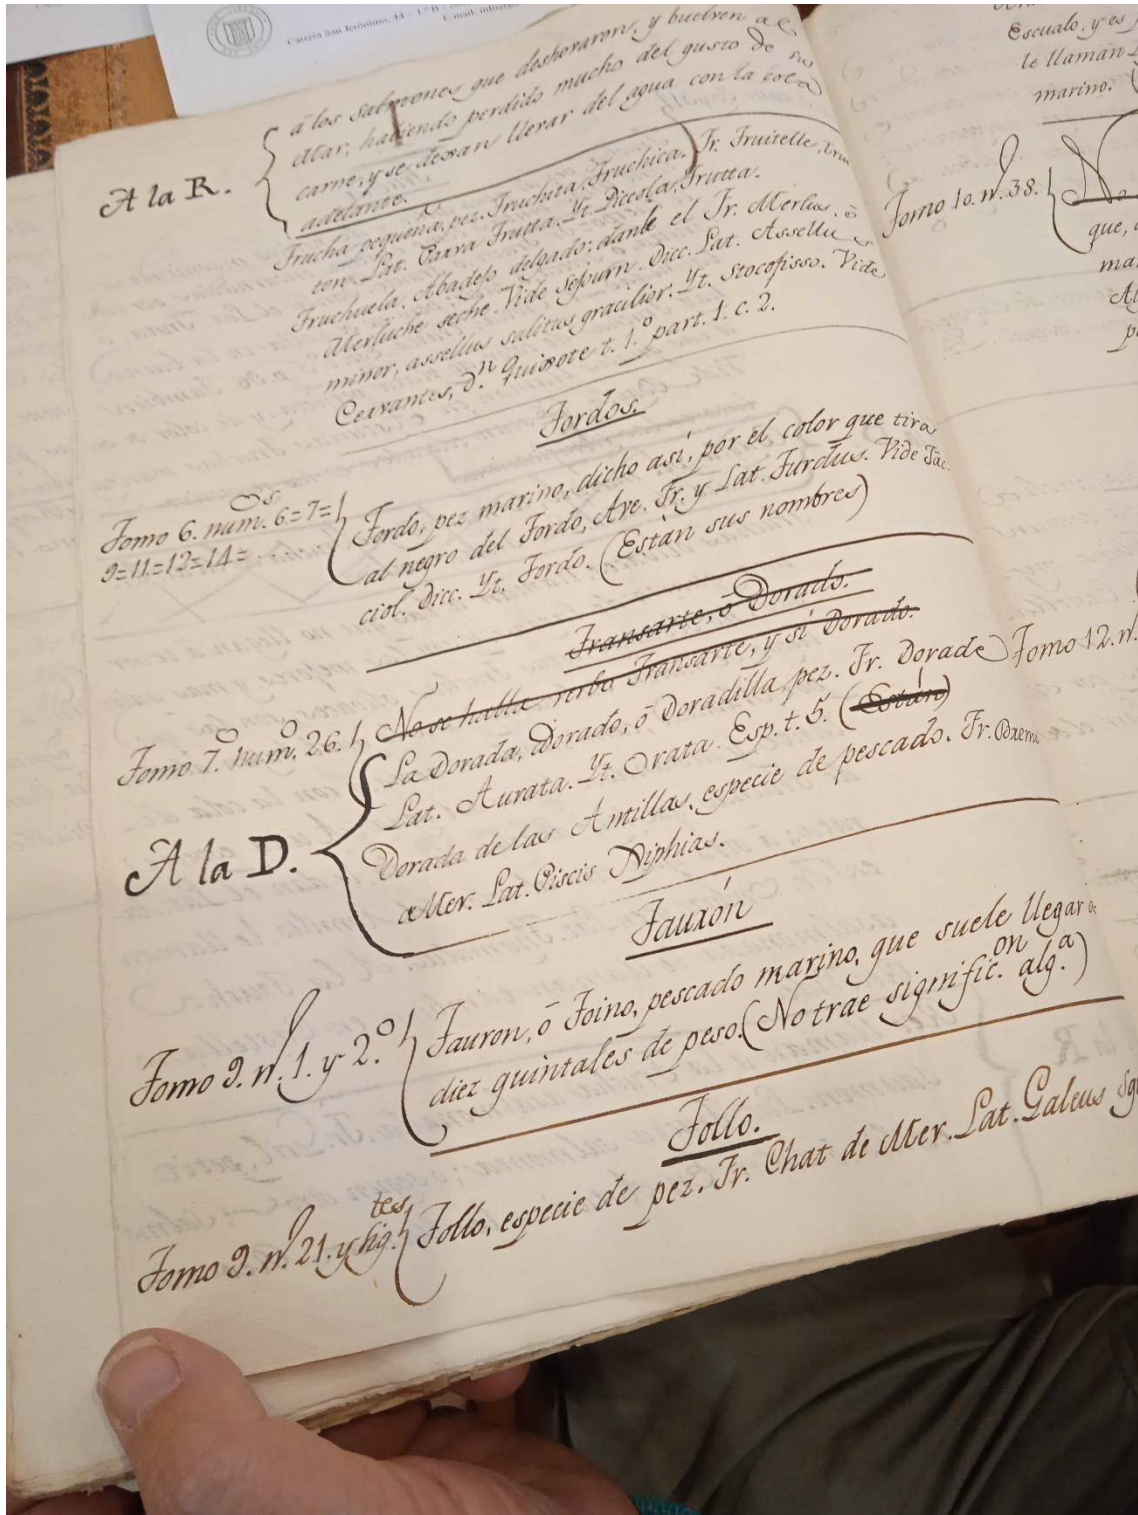 Carrera San Jerónimo, 44 - 1º B
E-mail:
A la R.
à los salmones que deshovaron, y buelven al
Mar, habiendo perdido mucho del gusto de su
carne, y se dexan llevar del agua con la cola
adelante.
Trucha pequeña, pez. Truchita, Truchica. Fr. Truitelle, tru
ton. Lat. Parva Trutta. Yt. Piccola Trutta.
Truchuela. Abadejo delgado: danle el Fr. Merlus, ò
Merluche seche. Vide Sejourn. Dicc. Lat. Assellus
minor, assellus salitus gracilior. Yt. Stocofisso. Vide
Cervantes, D.n Quixote t. 1.º part. 1. c. 2.
Tordos.
Tomo 6. num.os 6=7=
9=11=12=14=
Tordo, pez marino, dicho asi, por el color que tira
al negro del Tordo, Ave. Fr. y Lat. Turdus. Vide Fac-
ciol. Dicc. Yt. Tordo. (Estàn sus nombres)
Transarte, ò Dorado.
Tomo 7.º num.º 26.
No se halla verbo Transarte, y sí Dorado.
A la D.
La Dorada, Dorado, ò Doradilla pez. Fr. Dorade
Lat. Aurata. Yt. Orata. Esp. t. 5. (Están)
Dorada de las Antillas, especie de pescado. Fr.
Mer. Lat. Piscis Xiphias.
Tauròn
Tomo 9. n. 1. y 2.º
Tauron, ò Toino, pescado marino, que suele llegar à
diez quintales de peso. (No trae signific.on alg.a)
Tollo.
Tomo 9. n. 21. y sig.tes
Tollo, especie de pez. Fr. Chat de Mer. Lat. Galeus
Escualo, y es
le llaman
marino.
Tomo 10. n. 38.
No
que,
Tomo 12. n.